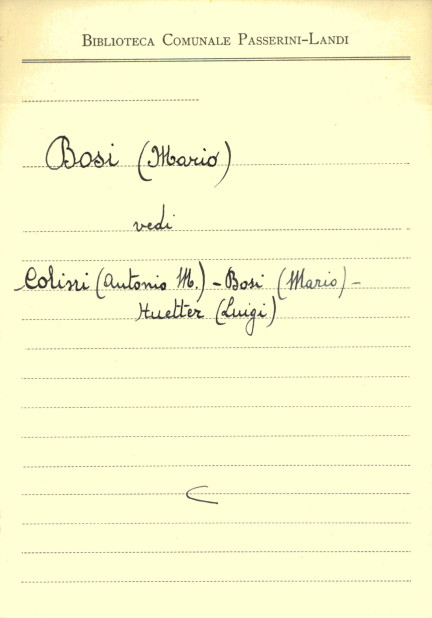 BIBLIOTECA COMUNALE PASSERINI-LANDI
Bosi (Mario)
vedi
Colini (Antonio M.) - Bosi (Mario) -
Huetter (Luigi)